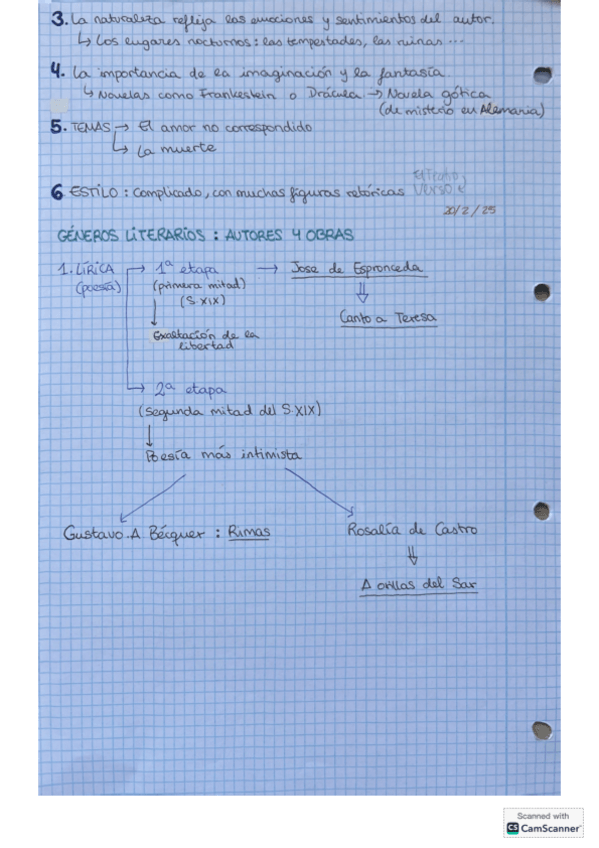 3. La naturaleza refleja las emociones y sentimientos del autor.
↳ Los lugares nocturnos: las tempestades, las ruinas ...
4. La importancia de la imaginación y la fantasía
↳ Novelas como Frankestein o Drácula → Novela gótica
(de misterio en Alemania)
5. TEMAS → El amor no correspondido
↳ La muerte
6 ESTILO: Complicado, con muchas figuras retóricas
Verso e
20/2/25
GÉNEROS LITERARIOS: AUTORES Y OBRAS
1. LÍRICA → 1ª etapa → Jose de Espronceda
(poesía) (primera mitad)
(S. XIX)
Canto a Teresa
Exaltación de la
libertad
↳ 2ª etapa
(Segunda mitad del S. XIX)
Poesía más intimista
Gustavo.A Bécquer: Rimas Rosalía de Castro
A orillas del Sar
Scanned with
CS CamScanner